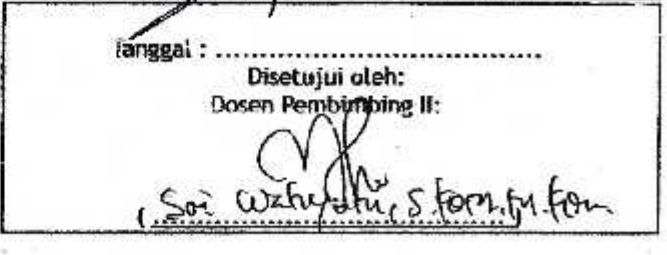 Tanggal : ........................................
Disetujui oleh:
Dosen Pembimbing II:
( Sri Wahyuni, S.Kom., M.Kom